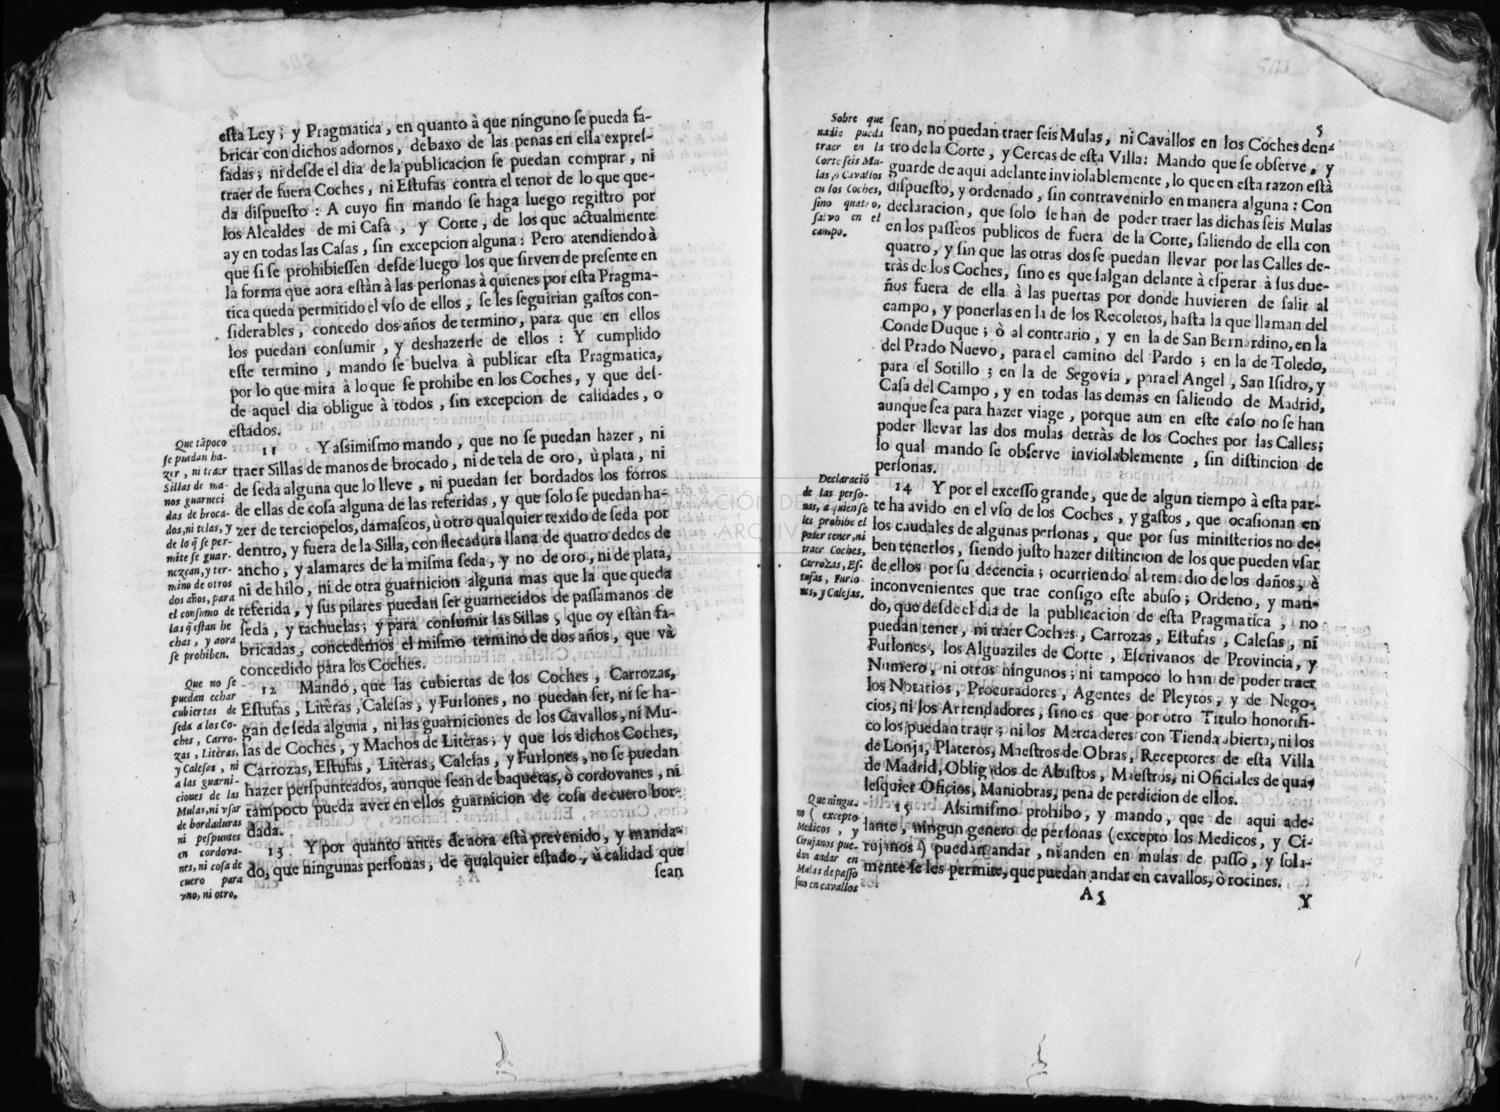 esta Ley; y Pragmatica, en quanto à que ninguno se pueda fa-
bricar con dichos adornos, debaxo de las penas en ella expres-
sadas; ni desde el dia de la publicacion se puedan comprar, ni
traer de fuera Coches, ni Estufas contra el tenor de lo que que-
da dispuesto: A cuyo fin mando se haga luego registro por
los Alcaldes de mi Casa, y Corte, de los que actualmente
ay en todas las Casas, sin excepcion alguna: Pero atendiendo à
que si se prohibiessen desde luego los que sirven de presente en
la forma que aora estàn à las personas à quienes por esta Pragma-
tica queda permitido el vso de ellos, se les seguirian gastos con-
siderables, concedo dos años de termino, para que en ellos
los puedan consumir, y deshazerse de ellos: Y cumplido
este termino, mando se buelva à publicar esta Pragmatica,
por lo que mira à lo que se prohibe en los Coches, y que des-
de aquel dia obligue à todos, sin excepcion de calidades, o
estados.
Que tãpoco
se puedan ha-
zer, ni traer
Sillas de ma-
nos guarneci
das de broca-
dos, ni telas, y
de lo q̃ se per-
mite se guar-
nezcan, y ter-
mino de otros
dos años, para
el consumo de
las q̃ estan he
chas, y aora
se prohiben.
11 Y assimismo mando, que no se puedan hazer, ni
traer Sillas de manos de brocado, ni de tela de oro, ù plata, ni
de seda alguna que lo lleve, ni puedan ser bordados los forros
de ellas de cosa alguna de las referidas, y que solo se puedan ha-
zer de terciopelos, damascos, ù otro qualquier texido de seda por
dentro, y fuera de la Silla, con flecadura llana de quatro dedos de
ancho, y alamares de la misma seda, y no de oro, ni de plata,
ni de hilo, ni de otra guarnicion alguna mas que la que queda
referida, y sus pilares puedan ser guarnecidos de passamanos de
seda, y tachuelas; y para consumir las Sillas, que oy estàn fa-
bricadas, concedemos el mismo termino de dos años, que và
concedido para los Coches.
Que no se
puedan echar
cubiertas de
seda a los Co-
ches, Carro-
zas, Litèras,
y Calesas, ni
a las guarni-
ciones de las
Mulas, ni vsar
de bordaduras
ni pespuntes
en cordova-
nes, ni cosa de
cuero para
vno, ni otro.
12 Mando, que las cubiertas de los Coches, Carrozas,
Estufas, Litèras, Calesas, y Furlones, no puedan ser, ni se ha-
gan de seda alguna, ni las guarniciones de los Cavallos, ni Mu-
las de Coches, y Machos de Litèras; y que los dichos Coches,
Carrozas, Estufas, Litèras, Calesas, y Furlones, no se puedan
hazer perspunteados, aunque sean de baquetas, ò cordovanes, ni
tampoco pueda aver en ellos guarnicion de cosa de cuero bor-
dada.
13 Y por quanto antes de aora està prevenido, y manda-
do, que ningunas personas, de qualquier estado, ù calidad que
sean
5
Sobre que
nadie pueda
traer en la
Corte seis Mu-
las, o Cavallos
en los Coches,
sino quatro,
salvo en el
campo.
sean, no puedan traer seis Mulas, ni Cavallos en los Coches den-
tro de la Corte, y Cercas de esta Villa: Mando que se observe, y
guarde de aqui adelante inviolablemente, lo que en esta razon està
dispuesto, y ordenado, sin contravenirlo en manera alguna: Con
declaracion, que solo se han de poder traer las dichas seis Mulas
en los passeos publicos de fuera de la Corte, saliendo de ella con
quatro, y sin que las otras dos se puedan llevar por las Calles de-
tràs de los Coches, sino es que salgan delante à esperar à sus due-
ños fuera de ella à las puertas por donde huvieren de salir al
campo, y ponerlas en la de los Recoletos, hasta la que llaman del
Conde Duque; ò al contrario, y en la de San Bernardino, en la
del Prado Nuevo, para el camino del Pardo; en la de Toledo,
para el Sotillo; en la de Segovia, para el Angel, San Isidro, y
Casa del Campo, y en todas las demàs en saliendo de Madrid,
aunque sea para hazer viage, porque aun en este caso no se han
poder llevar las dos mulas detràs de los Coches por las Calles;
lo qual mando se observe inviolablemente, sin distincion de
personas.
Declaració
de las perso-
nas, a quien se
les prohibe el
poder tener, ni
traer Coches,
Carrozas, Es-
tufas, Furlo-
nes, y Calesas.
14 Y por el excesso grande, que de algun tiempo à esta par-
te ha avido en el vso de los Coches, y gastos, que ocasionan en
los caudales de algunas personas, que por sus ministerios no de-
ben tenerlos, siendo justo hazer distincion de los que pueden vsar
de ellos por su decencia; ocurriendo al remedio de los daños, è
inconvenientes que trae consigo este abuso; Ordeno, y man-
do, que desde el dia de la publicacion de esta Pragmatica, no
puedan tener, ni traer Coches, Carrozas, Estufas, Calesas, ni
Furlones, los Alguaziles de Corte, Escrivanos de Provincia, y
Numero, ni otros ningunos; ni tampoco lo han de poder traer
los Notarios, Procuradores, Agentes de Pleytos, y de Nego-
cios, ni los Arrendadores, sino es que por otro Titulo honorifi-
co los puedan traer; ni los Mercaderes con Tienda abierta, ni los
de Lonja, Plateros, Maestros de Obras, Receptores de esta Villa
de Madrid, Obligados de Abastos, Maestros, ni Oficiales de qua-
lesquier Oficios, Maniobras, pena de perdicion de ellos.
Que ningu-
no (excepto
Medicos, y
Cirujanos pue-
dan andar en
Mulas de passo
sino en cavallos
15 Assimismo prohibo, y mando, que de aqui ade-
lante, ningun genero de personas (excepto los Medicos, y Ci-
rujanos) puedan andar, ni anden en mulas de passo, y sola-
mente se les permite, que puedan andar en cavallos, ò rocines.
A5
Y